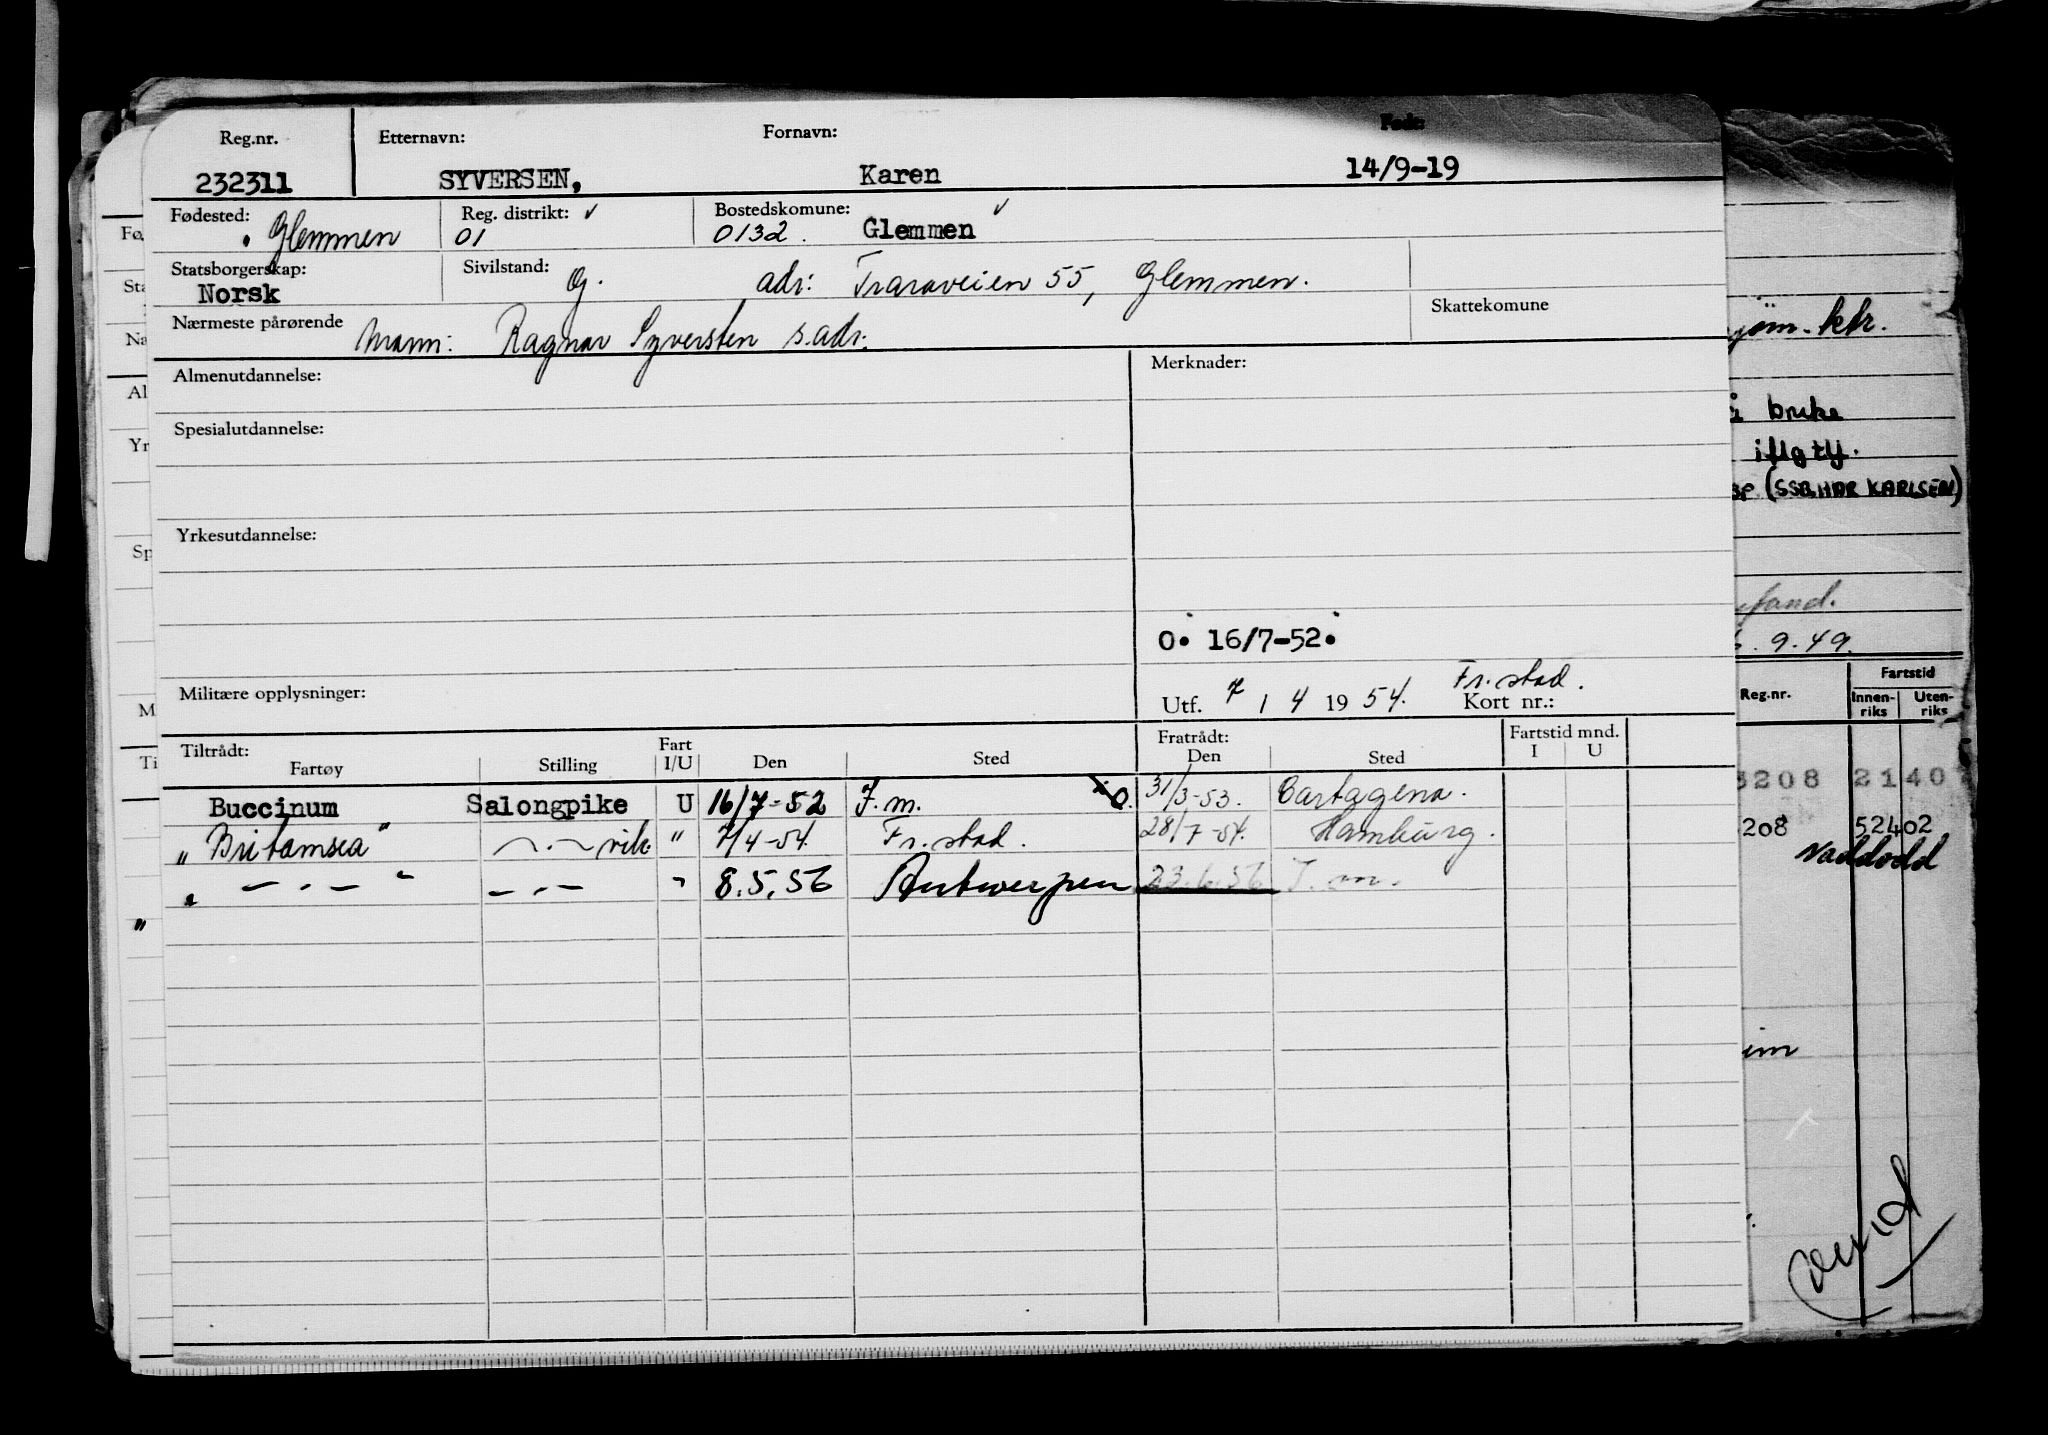 Reg.nr. Etternavn: Fornavn: Født:
232311 SYVERSEN, Karen 14/9-19
Fødested: Glemmen Reg. distrikt: ✓ 01 Bostedskomune: ✓ 0132. Glemmen
Statsborgerskap: Norsk Sivilstand: g. adr: Traraveien 55, Glemmen.
Nærmeste pårørende Mann: Ragnar Syversten s.adr. Skattekomune
Almenutdannelse: Merknader:
Spesialutdannelse:
Yrkesutdannelse:
O. 16/7-52.
Militære opplysninger: Utf. 7 / 4 1954. Fr.stad. Kort nr.:
Tiltrådt: Fratrådt: Fartstid mnd.
Fartøy Stilling Fart I/U Den Sted Den Sted I U
Buccinum Salongpike U 16/7-52 F.m. x O. 31/3-53. Cartagena.
"Britamsea" —.— vik. " 7/4-54. Fr.stad. 28/7-54. Hamburg.
" —.— " —.— " 8.5.56 Antwerpen 23.6.56 T.m.
"
Fø
Sta
Na
Al
Yr
Sp
M
Ti
jøm. ktr.
bruke
iflg tlf.
(SSB, HDR KARLSEN)
9.49.
Fartstid
Reg.nr. Innen-riks Uten-riks
3208 2140
208 52402
Vaddodd
im